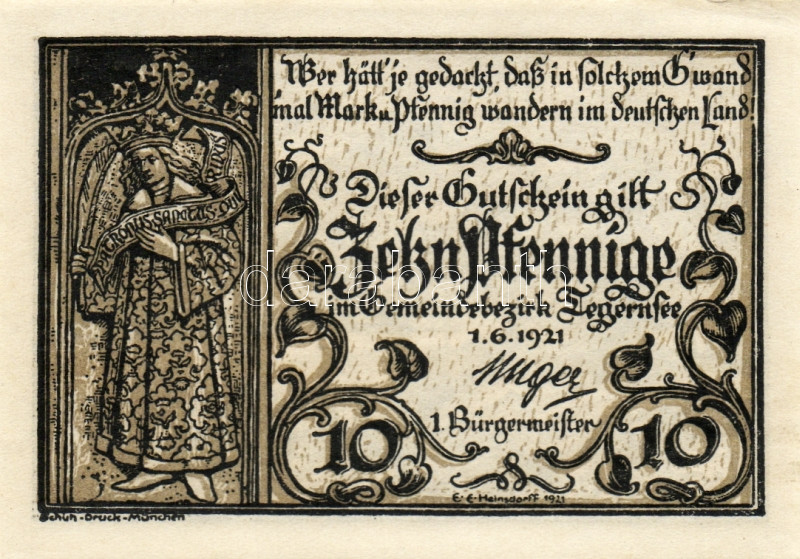 Wer hätt' je gedacht, daß in solchem G'wand
'mal Mark u. Pfennig wandern im deutschen Land!
Dieser Gutschein gilt
Zehn Pfennige
im Gemeindebezirk Tegernsee
1.6.1921
1. Bürgermeister
10
10
PATRONUS SANCTUS QUI
E. E. Heinsdorff 1921
Schuh-Druck-München
darabanth